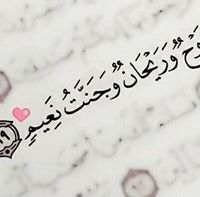 وَرَيْحَانٌ وَجَنَّتُ نَعِيمٍ